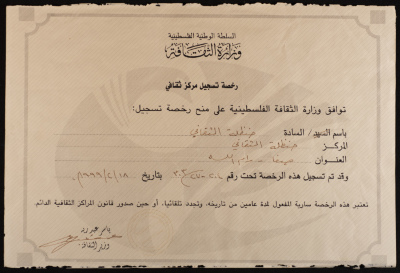 السلطة الوطنية الفلسطينية
وزارة الثقافة
رخصة تسجيل مركز ثقافي
توافق وزارة الثقافة الفلسطينية على منح رخصة تسجيل:
باسم السيد/ السادة حنظلة الثقافي
المركز حنظلة الثقافي
العنوان
وقد تم تسجيل هذه الرخصة تحت رقم بتاريخ
تعتبر هذه الرخصة سارية المفعول لمدة عامين من تاريخه، وتجدد تلقائيا، أو حين صدور قانون المراكز الثقافية الدائم.
ياسر عبد ربه
وزير الثقافة